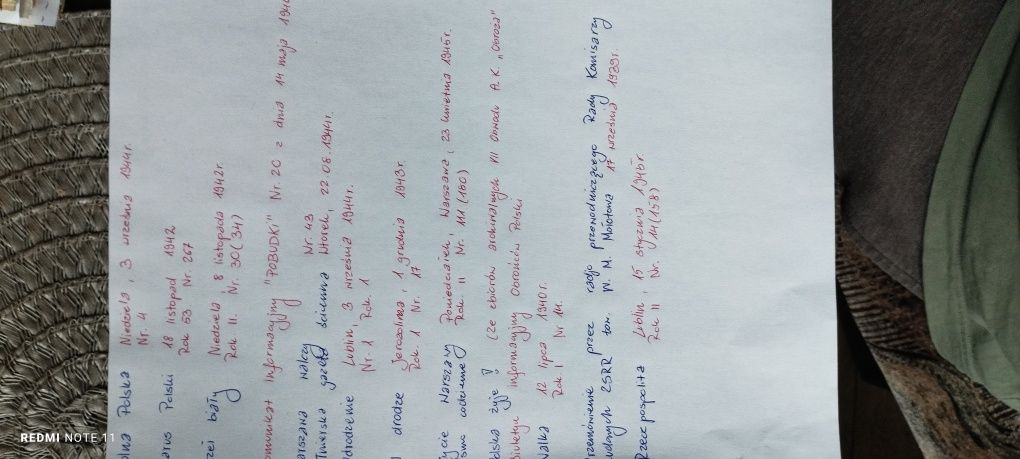 olna Polska Niedziela, 3 września 1944r.
Nr. 4
arus Polski 18 listopad 1942
Rok 53 Nr. 267
rzeł biały Niedziela, 8 listopada 1942r.
Rok II. Nr. 30(34)
omunikat informacyjny "POBUDKI" Nr. 20 z dnia 14 maja 194
arszawa walczy Nr. 43
Twierska gazeta ścienna Wtorek, 22.08.1944r.
drodzenie Lublin, 3 września 1944r.
Nr. 1 Rok. 1
drodze Jerozolima, 1 grudnia 1943r.
Rok 1 Nr. 17
ycie Warszawy Poniedziałek, Warszawa, 23 kwietnia 1945r.
smo codzienne Rok. II Nr. 111 (180)
olska żyje! (ze zbiorów archiwalnych VII Obwodu A.K. „Obroża"
Biuletyn informacyjny Obrońców Polski
Walka 12 lipca 1940r.
Rok. I Nr 14.
rzemówienie przez radjo przewodniczącego Rady Komisarzy
udowych ZSRR tow. W. M. Mołotowa 17 września 1939r.
Rzeczpospolita Lublin, 15 stycznia 1945r.
Rok II Nr. 14(158)
REDMI NOTE 11